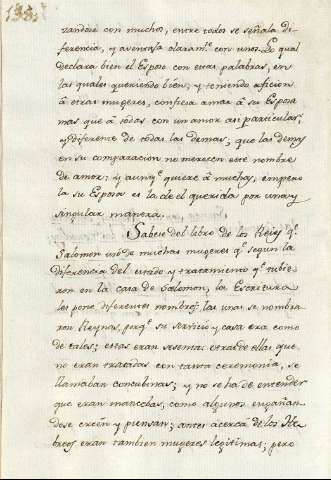 133
zandose con muchos, entre todos se señala di-
ferencia, y aventaja claramte. con unos. Lo qual
declara bien el Esposo con estas palabras, en
las quales queriendo bien, y teniendo aficion
à otras mugeres, confiesa amar à su Esposa
mas que à todas con un amor asi particular,
y diferente de todas las demas, que las demas
en su comparacion no merecen este nombre
de amor; y aunqe. quiere à muchas, empero
la su Esposa es la de el querida por una y
singular manera.
Sabese del libro de los Reyes qe.
Salomon usò de muchas mugeres qe. segun la
diferencia del estado y tratamiento qe. tubie-
ron en la casa de Salomon, la Escritura
les pone diferentes nombres; las unas se nombra-
ron Reynas, porqe. su servicio y casa era como
de tales; estas eran sesenta: otras de ellas que
no eran tratadas con tanta ceremonia, se
llamaban concubinas; y no se ha de entender
que eran mancebas, como algunos engañan-
dose creen y piensan; antes acerca de los He-
breos eran tambien mugeres legitimas; pero